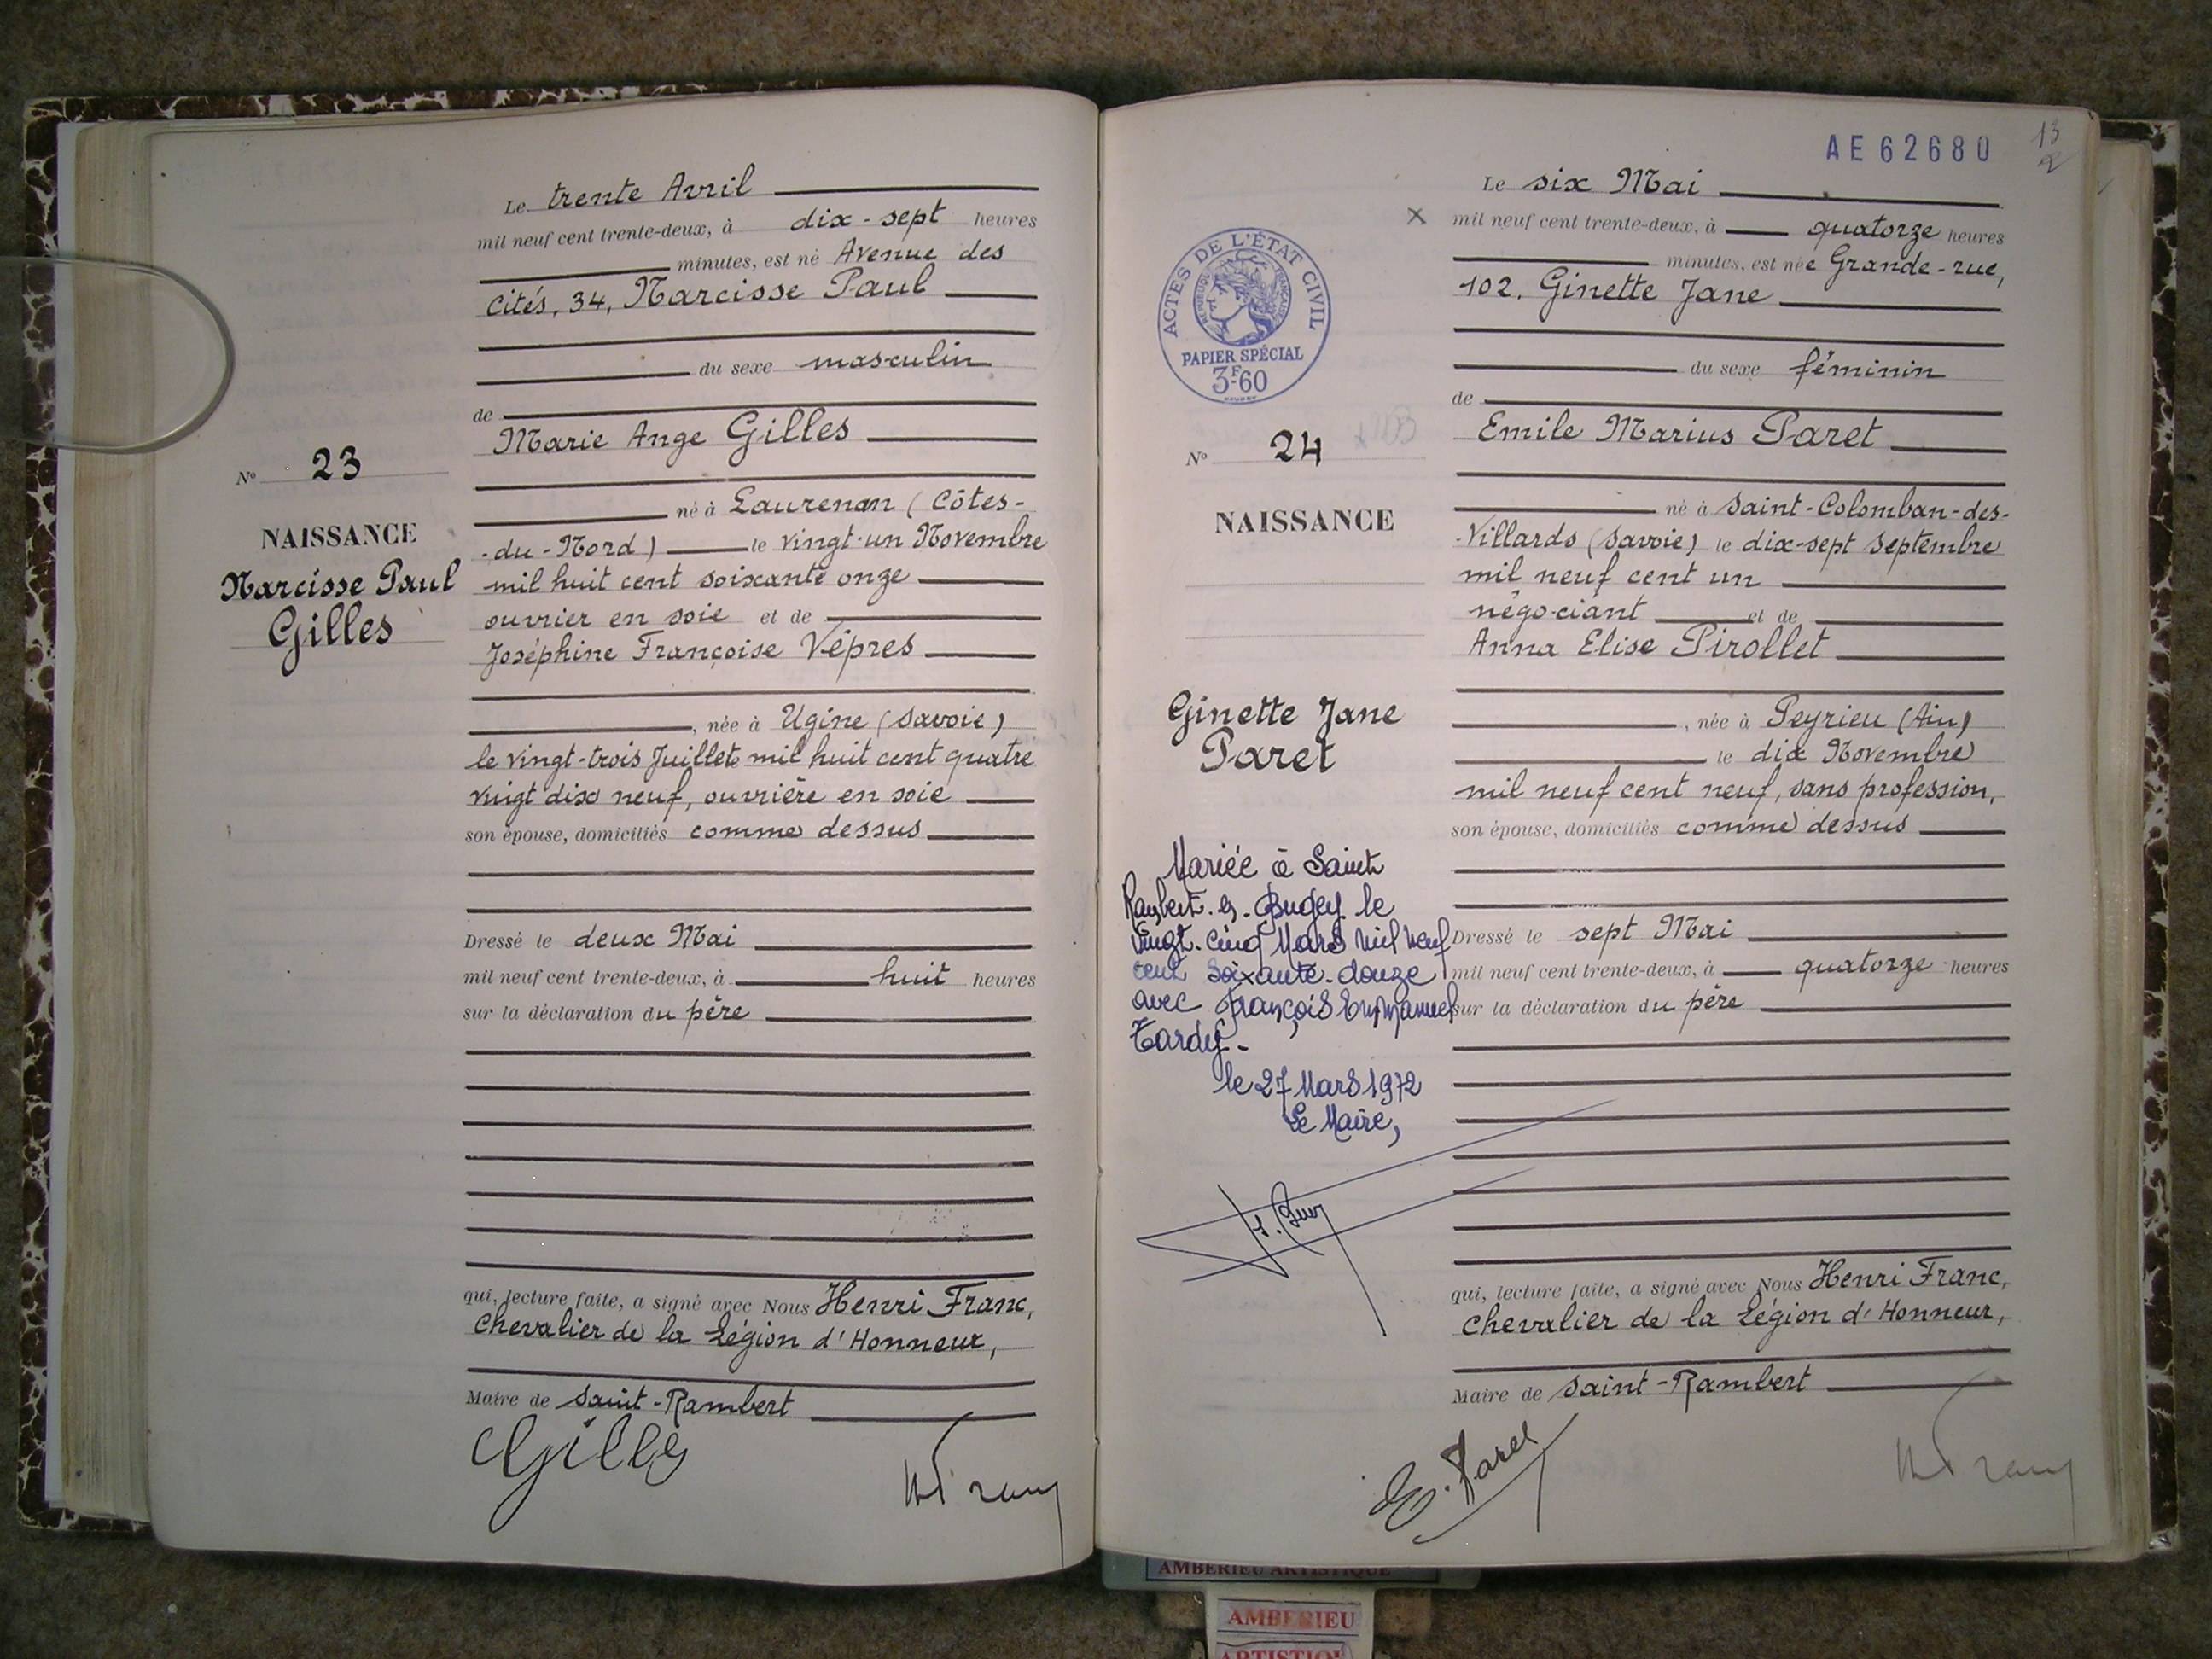 Le trente Avril
mil neuf cent trente-deux, à dix-sept heures
minutes, est né Avenue des
Cités, 34, Narcisse Paul
du sexe masculin
de
Marie Ange Gilles
né à Laurenan (Côtes-
-du-Nord) le vingt-un Novembre
mil huit cent soixante onze
ouvrier en soie et de
Joséphine Françoise Vêpres
, née à Ugine (Savoie)
le vingt-trois Juillet mil huit cent quatre
vingt dix neuf, ouvrière en soie
son épouse, domiciliés comme dessus
Dressé le deux Mai
mil neuf cent trente-deux, à huit heures
sur la déclaration du père
qui, lecture faite, a signé avec Nous Henri Franc,
Chevalier de la Légion d'Honneur,
Maire de Saint-Rambert
Gilles
N° 23
NAISSANCE
Narcisse Paul
Gilles
AE 62680
13
Le six Mai
mil neuf cent trente-deux, à quatorze heures
minutes, est née Grande-rue,
102, Ginette Jane
du sexe féminin
de
Emile Marius Paret
né à Saint-Colomban-des-
-Villards (Savoie) le dix-sept Septembre
mil neuf cent un
négociant et de
Anna Elise Pirollet
, née à Peyrieu (Ain)
le dix Novembre
mil neuf cent neuf, sans profession,
son épouse, domiciliés comme dessus
Dressé le sept Mai
mil neuf cent trente-deux, à quatorze heures
sur la déclaration du père
qui, lecture faite, a signé avec Nous Henri Franc,
Chevalier de la Légion d'Honneur,
Maire de Saint-Rambert
E. Paret
ACTES DE L'ÉTAT CIVIL
RÉPUBLIQUE FRANÇAISE
PAPIER SPÉCIAL
3F60
N° 24
NAISSANCE
Ginette Jane
Paret
Mariée à Saint
Rambert-en-Bugey le
vingt-cinq Mars mil neuf
cent soixante-douze
avec François Emmanuel
Tardy-
le 27 Mars 1972
Le Maire,
AMBERIEU ARTISTIQUE
AMBERIEU
ARTISTIQU